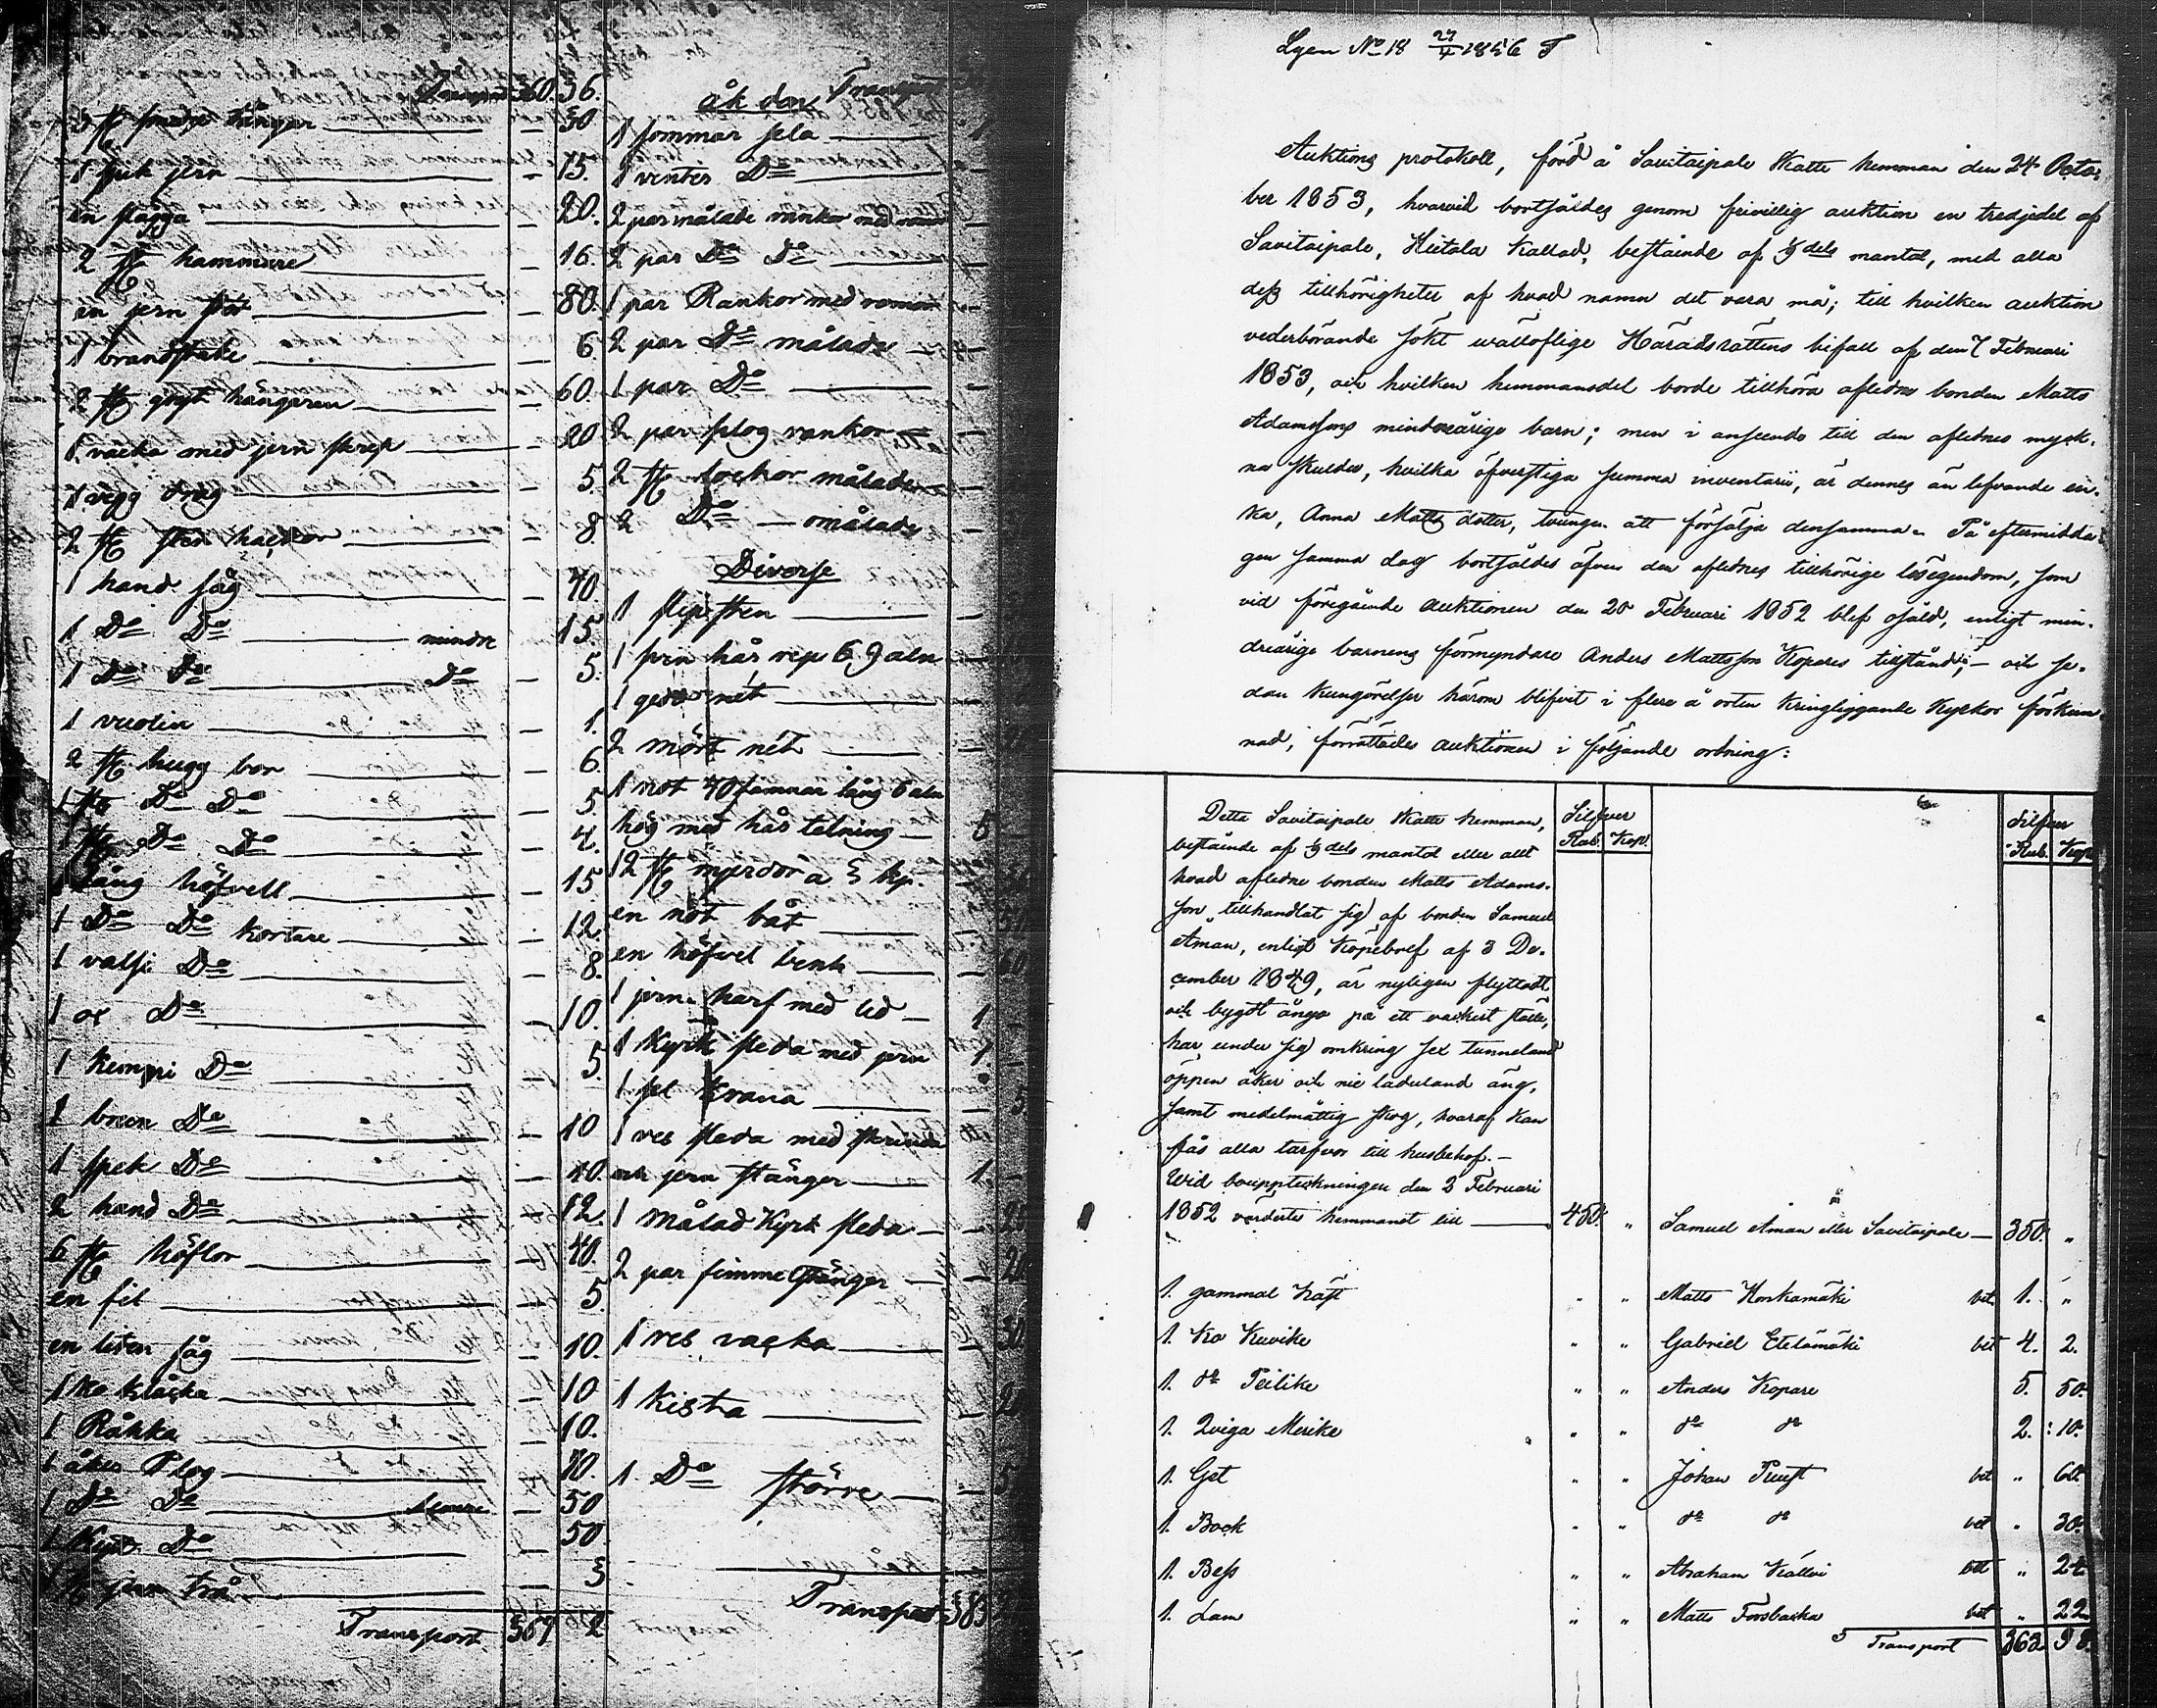 Transport 360. 36.
3 st smedie tänger — 50
1 puk jern — 75.
en slägga — 20.
2 st hammare — 16.
en jern stör — 80.
1 brandstake — 6
2 st gryt hängaren — 60.
1. väcka med jern skrap — 20
1 vigg drag — 5.
2 st sten hackor — 8.
1 hand såg — 40
1 Do Do mindre 15.
1 Do Do Do — 5.
1 vuolin — 1.
2 st hugg bor — 6.
1 st Do Do — 5.
1 st Do Do — 4.
1 lång höfvell — 15
1 Do Do kortare — 12.
1 valsi Do — 8.
1 ox Do — 10.
1 kempi Do — 5.
2 boen Do — 10
1 spek Do — 40.
2 hand Do — 12.
6 st höflor — 40.
en fil — 5.
en liten såg — 10.
1 ko klåcka — 10
1 Råkka — 10.
1 åker Plog — 70.
1 Do Do — 50
1 Do — 50
jern trå — 3
Transport 367 2
åk don Transport
1 sommar sela — 1
1 venter Do —
2 par målade rankor med
2 par Do Do
1 par Rankor med
2 par Do målade —
1 par Do —
2 par plog rankor —
2 st tockor målade
2 Do — omålade
Diverse
1 slip sten —
1 prin hår rep 6 9 aln
1 gedd nät —
2 mört nät —
1 not 40 famnar lång 6 aln
hög med hår telning — 5
12 st myrdor a 3 kp.
en not båt —
en höfvel bänk — 60
1 jern harf med led — 1
1 Kyrk sleda med jern 1
1 sel krana — 5
1 res sleda med skrinda
och jern stänger — 1.
1 målad Kyrk sleda — 25
2 par simme stänger — 20
1 res vacka — 30
1 Kista — 20
1. Do större — 5
Transport 383
Lyen No 18 27/4 1856 T
Auktions protokoll, förd å Savitaipale Skatte hemman den 24 Octo-
ber 1853, hvarvid bortsåldes genom frivillig auktion en tredjedel af
Savitaipale, Hietala kallad, bestående af 1/9 dels mantal, med alla
dess tillhörigheter af hvad namn det vara må; till hvilken auktion
vederbörande sökt wälloflige Häradsrättens bifall af den 7 Februari
1853, och hvilken hemmansdel borde tillhöra aflidne bonden Matts
Adamssons minderårige barn; men i anseende till den aflidnes myck-
na skulder, hvilka öfverstiga summa inventarii, är dennes än lefvande en-
ka, Anna Matts dotter, tvungen att försälja densamma. På eftermidda-
gen samma dag bortsåldes äfven den aflidnes tillhörige lösegendom, som
vid föregående auktionen den 20 Februari 1852 blef osåld, enligt min-
dreårige barnens förmyndare Anders Mattsson Kopares tillstånd; — och se-
dan kungörelser härom blifvit i flere å orten kringliggande kyrkor förkun-
nad, förrättades auktionen i följande ordning:
Silfver Rub. Kop. Silfver Rub. Kop.
Detta Savitaipale Skatte hemman,
bestående af 1/9 dels mantal eller allt
hvad aflidne bonden Matts Adams-
son tillhandlat sig af bonden Samuel
Aman, enligt Köpebref af 3 De-
cember 1849, är nyligen flyttadt
och bygdt ånyo på ett vackert ställe,
har under sig omkring sex tunneland
öppen åker och nie laduland äng,
samt medelmåttig skog, hvaraf kan
fås alla tarfvor till husbehof. —
Wid bouppteckningen den 3 Februari
1852 värderts hemmanet till — 450. " Samuel Aman eller Savitaipale — 350. "
1. gammal Häst " " Matts Honkamäki bet. 1. "
1. Ko Kuvike " " Gabriel Etelämäki bet 4. 2.
1. do Teilike " " Anders Kopare 5. 50.
1. Qviga Merike " " do do 2. 10.
1. Get " " Johan Puust bet " 60.
1. Bock " " do do bet " 30.
1. Bess " " Abraham Källvi bet " 24.
1. Lam " " Matts Forsbacka bet " 22.
Transport 363. 98.